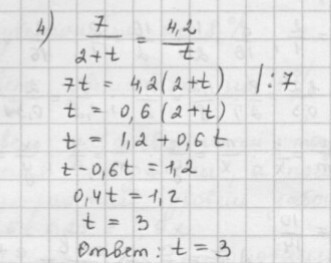 4) 7/(2+t) = 4,2/t
7t = 4,2(2+t) |:7
t = 0,6(2+t)
t = 1,2 + 0,6t
t - 0,6t = 1,2
0,4t = 1,2
t = 3
Ответ: t = 3